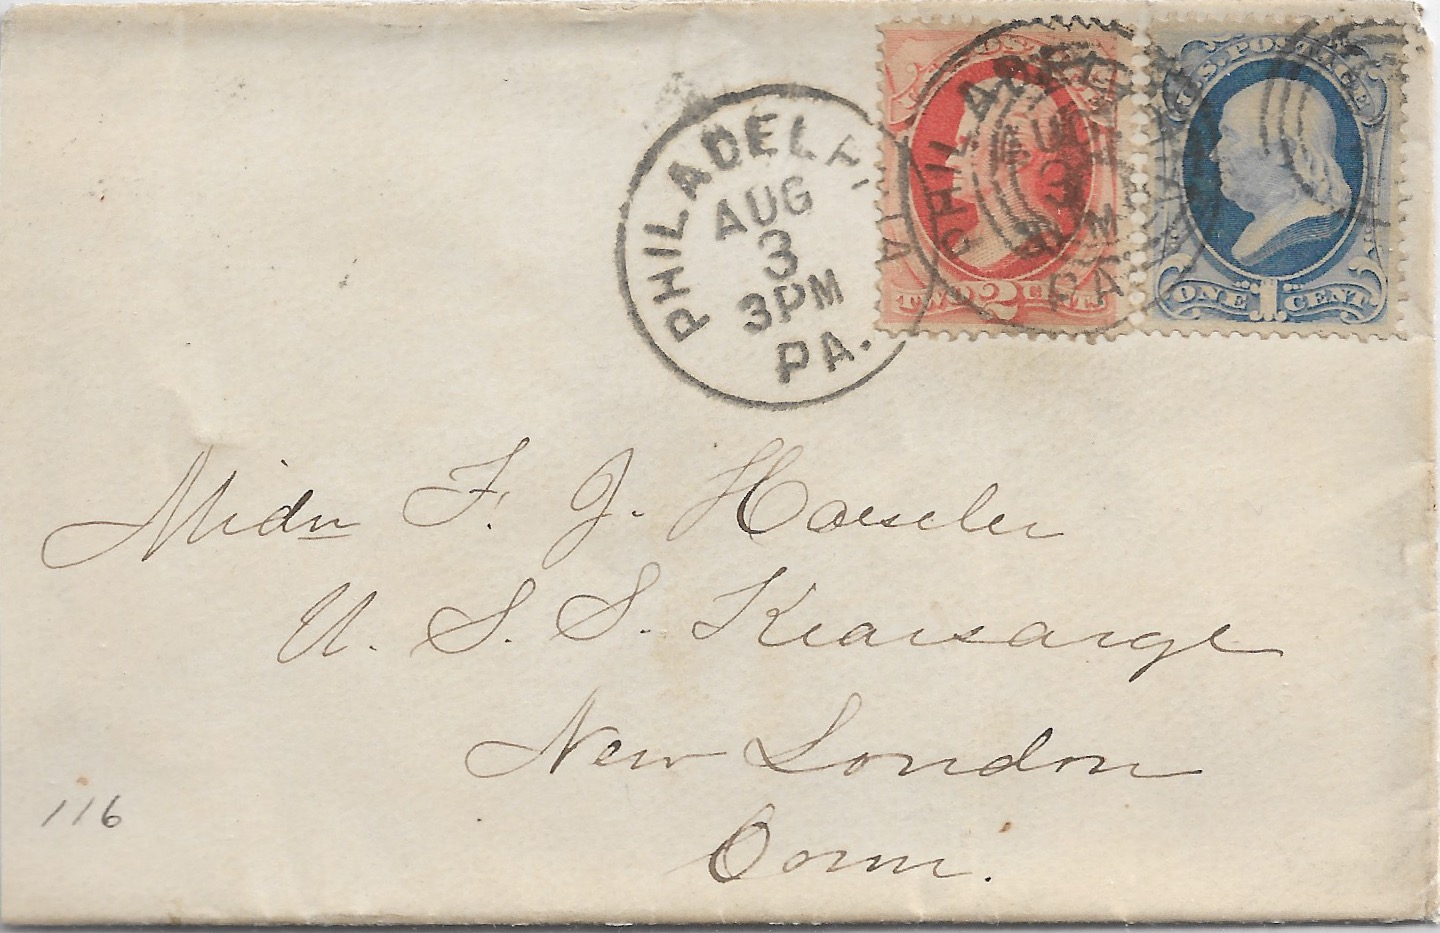 PHILADELPHIA
AUG
3
3PM
PA.
PHILADEL
AUG
3
PM
PA
U.S. POSTAGE
TWO 2 CENTS
U.S. POSTAGE
ONE 1 CENT
Midn F. J. Haeseler
U. S. S. Kearsarge
New London
Conn.
116